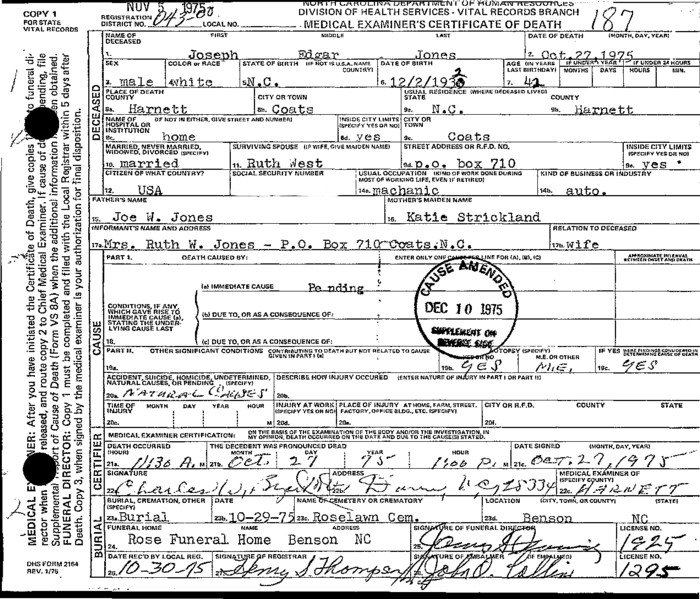 COPY 1
FOR STATE
VITAL RECORDS
NOV 5 1975
REGISTRATION DISTRICT NO. 043-00 LOCAL NO.
NORTH CAROLINA DEPARTMENT OF HUMAN RESOURCES
DIVISION OF HEALTH SERVICES - VITAL RECORDS BRANCH
MEDICAL EXAMINER'S CERTIFICATE OF DEATH 187
NAME OF DECEASED FIRST MIDDLE LAST DATE OF DEATH (MONTH, DAY, YEAR)
1. Joseph Edgar Jones 2. Oct. 27, 1975
SEX COLOR or RACE STATE OF BIRTH (IF NOT IN U.S.A. NAME COUNTRY) DATE OF BIRTH AGE (IN YEARS LAST BIRTHDAY) IF UNDER 1 YEAR MONTHS DAYS IF UNDER 24 HOURS HOURS MIN.
3. male 4. white 5. N.C. 6. 12/2/1933 7. 42
PLACE OF DEATH COUNTY CITY OR TOWN USUAL RESIDENCE (WHERE DECEASED LIVED) STATE COUNTY
8a. Harnett 8b. Coats 9a. N.C. 9b. Harnett
NAME OF HOSPITAL OR INSTITUTION (IF NOT IN EITHER, GIVE STREET AND NUMBER) INSIDE CITY LIMITS (SPECIFY YES OR NO) CITY OR TOWN
8c. home 8d. yes 9c. Coats
MARRIED, NEVER MARRIED, WIDOWED, DIVORCED (SPECIFY) SURVIVING SPOUSE (IF WIFE, GIVE MAIDEN NAME) STREET ADDRESS OR R.F.D. NO. INSIDE CITY LIMITS (SPECIFY YES OR NO)
10. married 11. Ruth West 9d. p.o. box 710 9e. yes
CITIZEN OF WHAT COUNTRY? SOCIAL SECURITY NUMBER USUAL OCCUPATION (KIND OF WORK DONE DURING MOST OF WORKING LIFE, EVEN IF RETIRED) KIND OF BUSINESS OR INDUSTRY
12. USA 14a. machanic 14b. auto.
FATHER'S NAME MOTHER'S MAIDEN NAME
15. Joe W. Jones 16. Katie Strickland
INFORMANT'S NAME AND ADDRESS RELATION TO DECEASED
17a. Mrs. Ruth W. Jones - P.O. Box 710 Coats, N.C. 17b. wife
PART I. DEATH CAUSED BY: ENTER ONLY ONE CAUSE PER LINE FOR (A), (B), (C) APPROXIMATE INTERVAL BETWEEN ONSET AND DEATH
(a) IMMEDIATE CAUSE Pending
CAUSE AMENDED
DEC 10 1975
SUPPLEMENT ON
REVERSE SIDE
CONDITIONS, IF ANY, WHICH GAVE RISE TO IMMEDIATE CAUSE (a), STATING THE UNDERLYING CAUSE LAST
(b) DUE TO, OR AS A CONSEQUENCE OF:
18. (c) DUE TO, OR AS A CONSEQUENCE OF:
PART II. OTHER SIGNIFICANT CONDITIONS CONTRIBUTING TO DEATH BUT NOT RELATED TO CAUSE GIVEN IN PART I (a) AUTOPSY (SPECIFY) YES OR NO M.E. OR OTHER IF YES WERE FINDINGS CONSIDERED IN DETERMINING CAUSE OF DEATH
19a. 19b. YES M.E. 19c. YES
ACCIDENT, SUICIDE, HOMICIDE, UNDETERMINED, NATURAL CAUSES, OR PENDING (SPECIFY) DESCRIBE HOW INJURY OCCURED (ENTER NATURE OF INJURY IN PART I OR PART II)
20a. NATURAL CAUSES 20b.
TIME OF INJURY MONTH DAY YEAR HOUR INJURY AT WORK (SPECIFY YES OR NO) PLACE OF INJURY AT HOME, FARM, STREET, FACTORY, OFFICE BLDG., ETC. (SPECIFY) CITY OR R.F.D. COUNTY STATE
20c. M 20d. 20e. 20f.
MEDICAL EXAMINER CERTIFICATION: ON THE BASIS OF THE EXAMINATION OF THE BODY AND/OR THE INVESTIGATION, IN MY OPINION, DEATH OCCURRED ON THE DATE AND DUE TO THE CAUSE(S) STATED.
DEATH OCCURRED (HOUR) THE DECEDENT WAS PRONOUNCED DEAD MONTH DAY YEAR HOUR DATE SIGNED (MONTH, DAY, YEAR)
21a. 11:30 A. M 21b. Oct. 27 75 1:00 P. M 21c. Oct. 27, 1975
SIGNATURE ADDRESS MEDICAL EXAMINER OF (SPECIFY COUNTY)
22a. Charles W. 22b. NC 28334 22c. HARNETT
BURIAL, CREMATION, OTHER (SPECIFY) DATE NAME OF CEMETERY OR CREMATORY LOCATION (CITY, TOWN, OR COUNTY) (STATE)
23a. Burial 23b. 10-29-75 23c. Roselawn Cem. 23d. Benson NC
FUNERAL HOME NAME ADDRESS SIGNATURE OF FUNERAL DIRECTOR LICENSE NO.
24. Rose Funeral Home Benson NC 25. 1925
DATE REC'D BY LOCAL REG. SIGNATURE OF REGISTRAR SIGNATURE OF EMBALMER (IF EMBALMED) LICENSE NO.
26. 10-30-75 27. Henry S. Thompson John O. Collin 1295
DHS FORM 2164
REV. 1/75
DECEASED
CAUSE
CERTIFIER
BURIAL
MEDICAL EXAMINER: After you have initiated the Certificate of Death, give copies to funeral director when released, and route copy 2 to Chief Medical Examiner. If cause of death pending, file
Supplemental Report of Cause of Death (Form VS 8A) when the additional information obtained.
FUNERAL DIRECTOR: Copy 1 must be completed and filed with the Local Registrar within 5 days after
Death. Copy 3, when signed by the medical examiner is your authorization for final disposition.